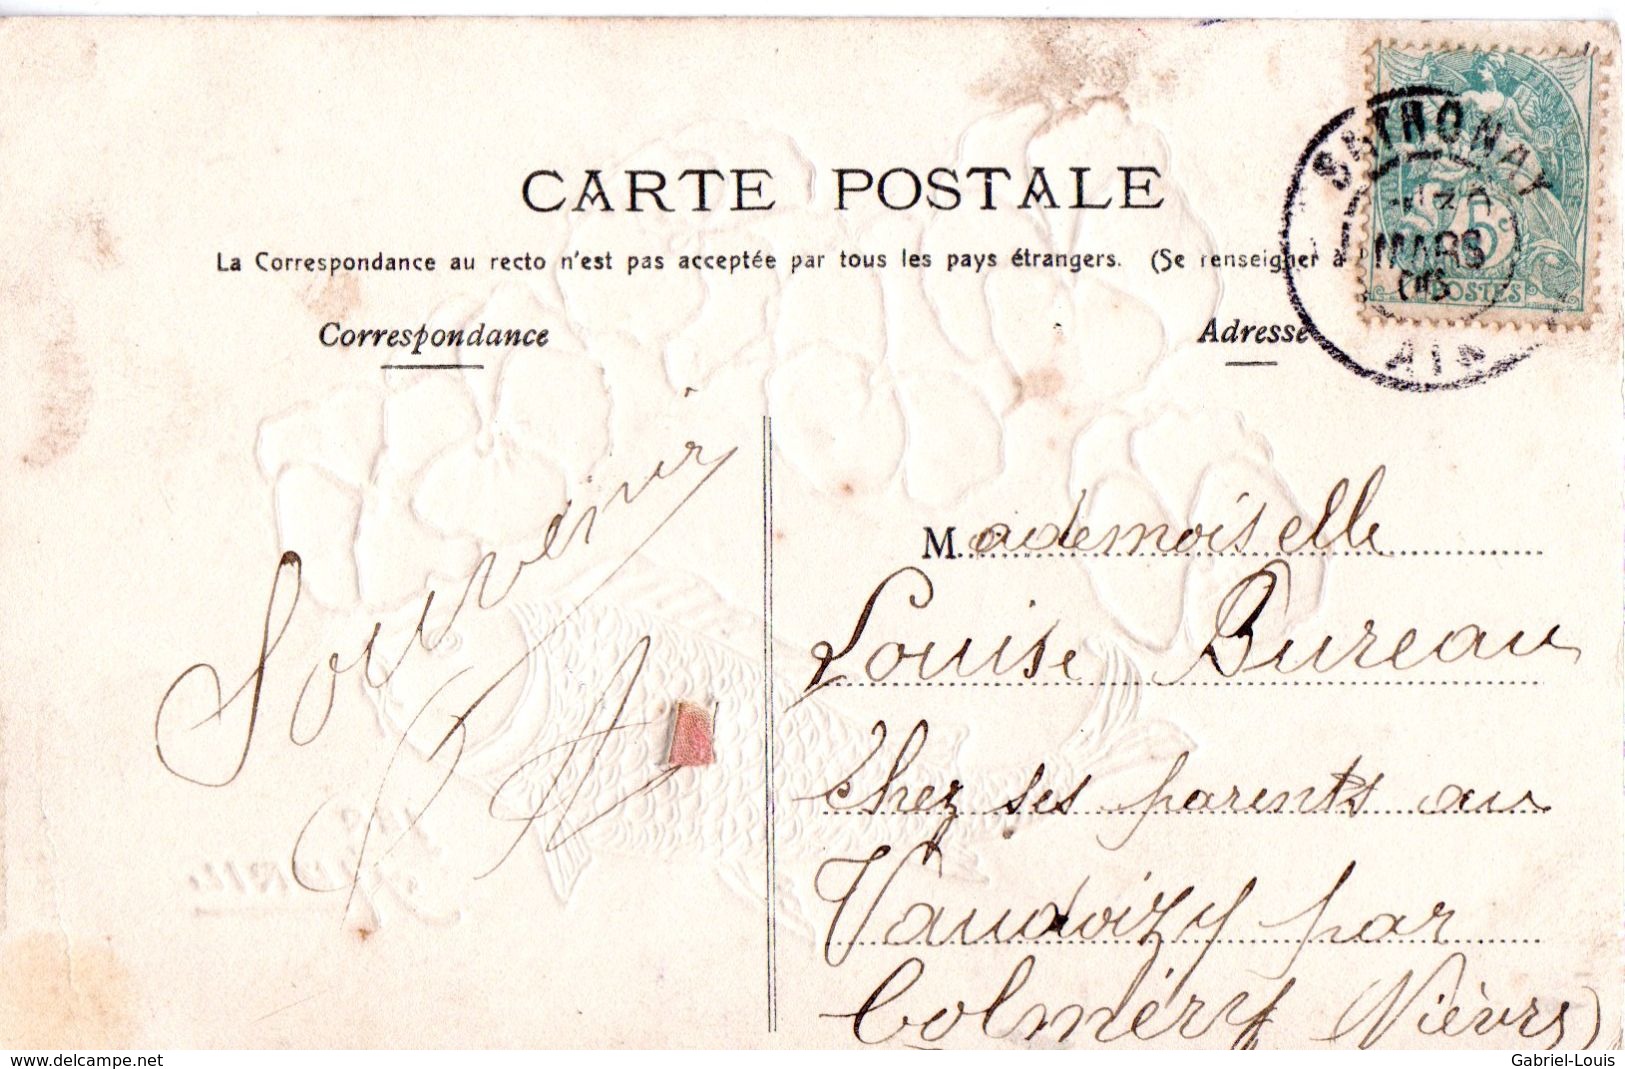 CARTE POSTALE
La Correspondance au recto n'est pas acceptée par tous les pays étrangers. (Se renseigner à
Correspondance
Adresse
SATHONAY
MARS
06
AIN
5c
POSTES
Souvenir
Mademoiselle
Louise Bureau
chez ses parents au
Vaudoizy par
Colméry Nièvre)
AVRIL
delcampe.net
Gabriel-Louis